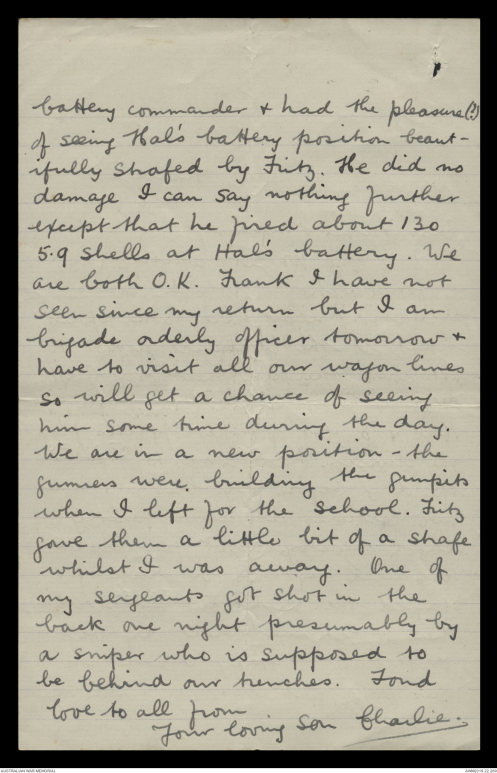 battery commander + had the pleasure (?)
of seeing Hal's battery position beaut-
ifully strafed by Fritz. He did no
damage I can say nothing further
except that he fired about 130
5.9 shells at Hal's battery. We
are both O.K. Frank I have not
seen since my return but I am
brigade orderly officer tomorrow +
have to visit all our wagon lines
so will get a chance of seeing
him some time during the day.
We are in a new position - the
gunners were building the gunpits
when I left for the school. Fritz
gave them a little bit of a strafe
whilst I was away. One of
my sergeants got shot in the
back one night presumably by
a sniper who is supposed to
be behind our trenches. Fond
love to all from
Your loving son Charlie.
AUSTRALIAN WAR MEMORIAL